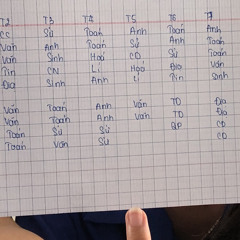 T2 T3 T4 T5 T6 T7
CC Sử Toán Anh Toán Anh
Văn Anh Toán Sử Anh Toán
Văn Sinh Hoá CD Sử Toán
Tin CN Lí Hoá Địa Văn
Địa Sinh Anh Lí Tin Sinh
Văn Toán Anh Văn TD Địa
Văn Toán Anh Văn TD Địa
Toán Sử Sử QP CD
Toán Văn Sử CD